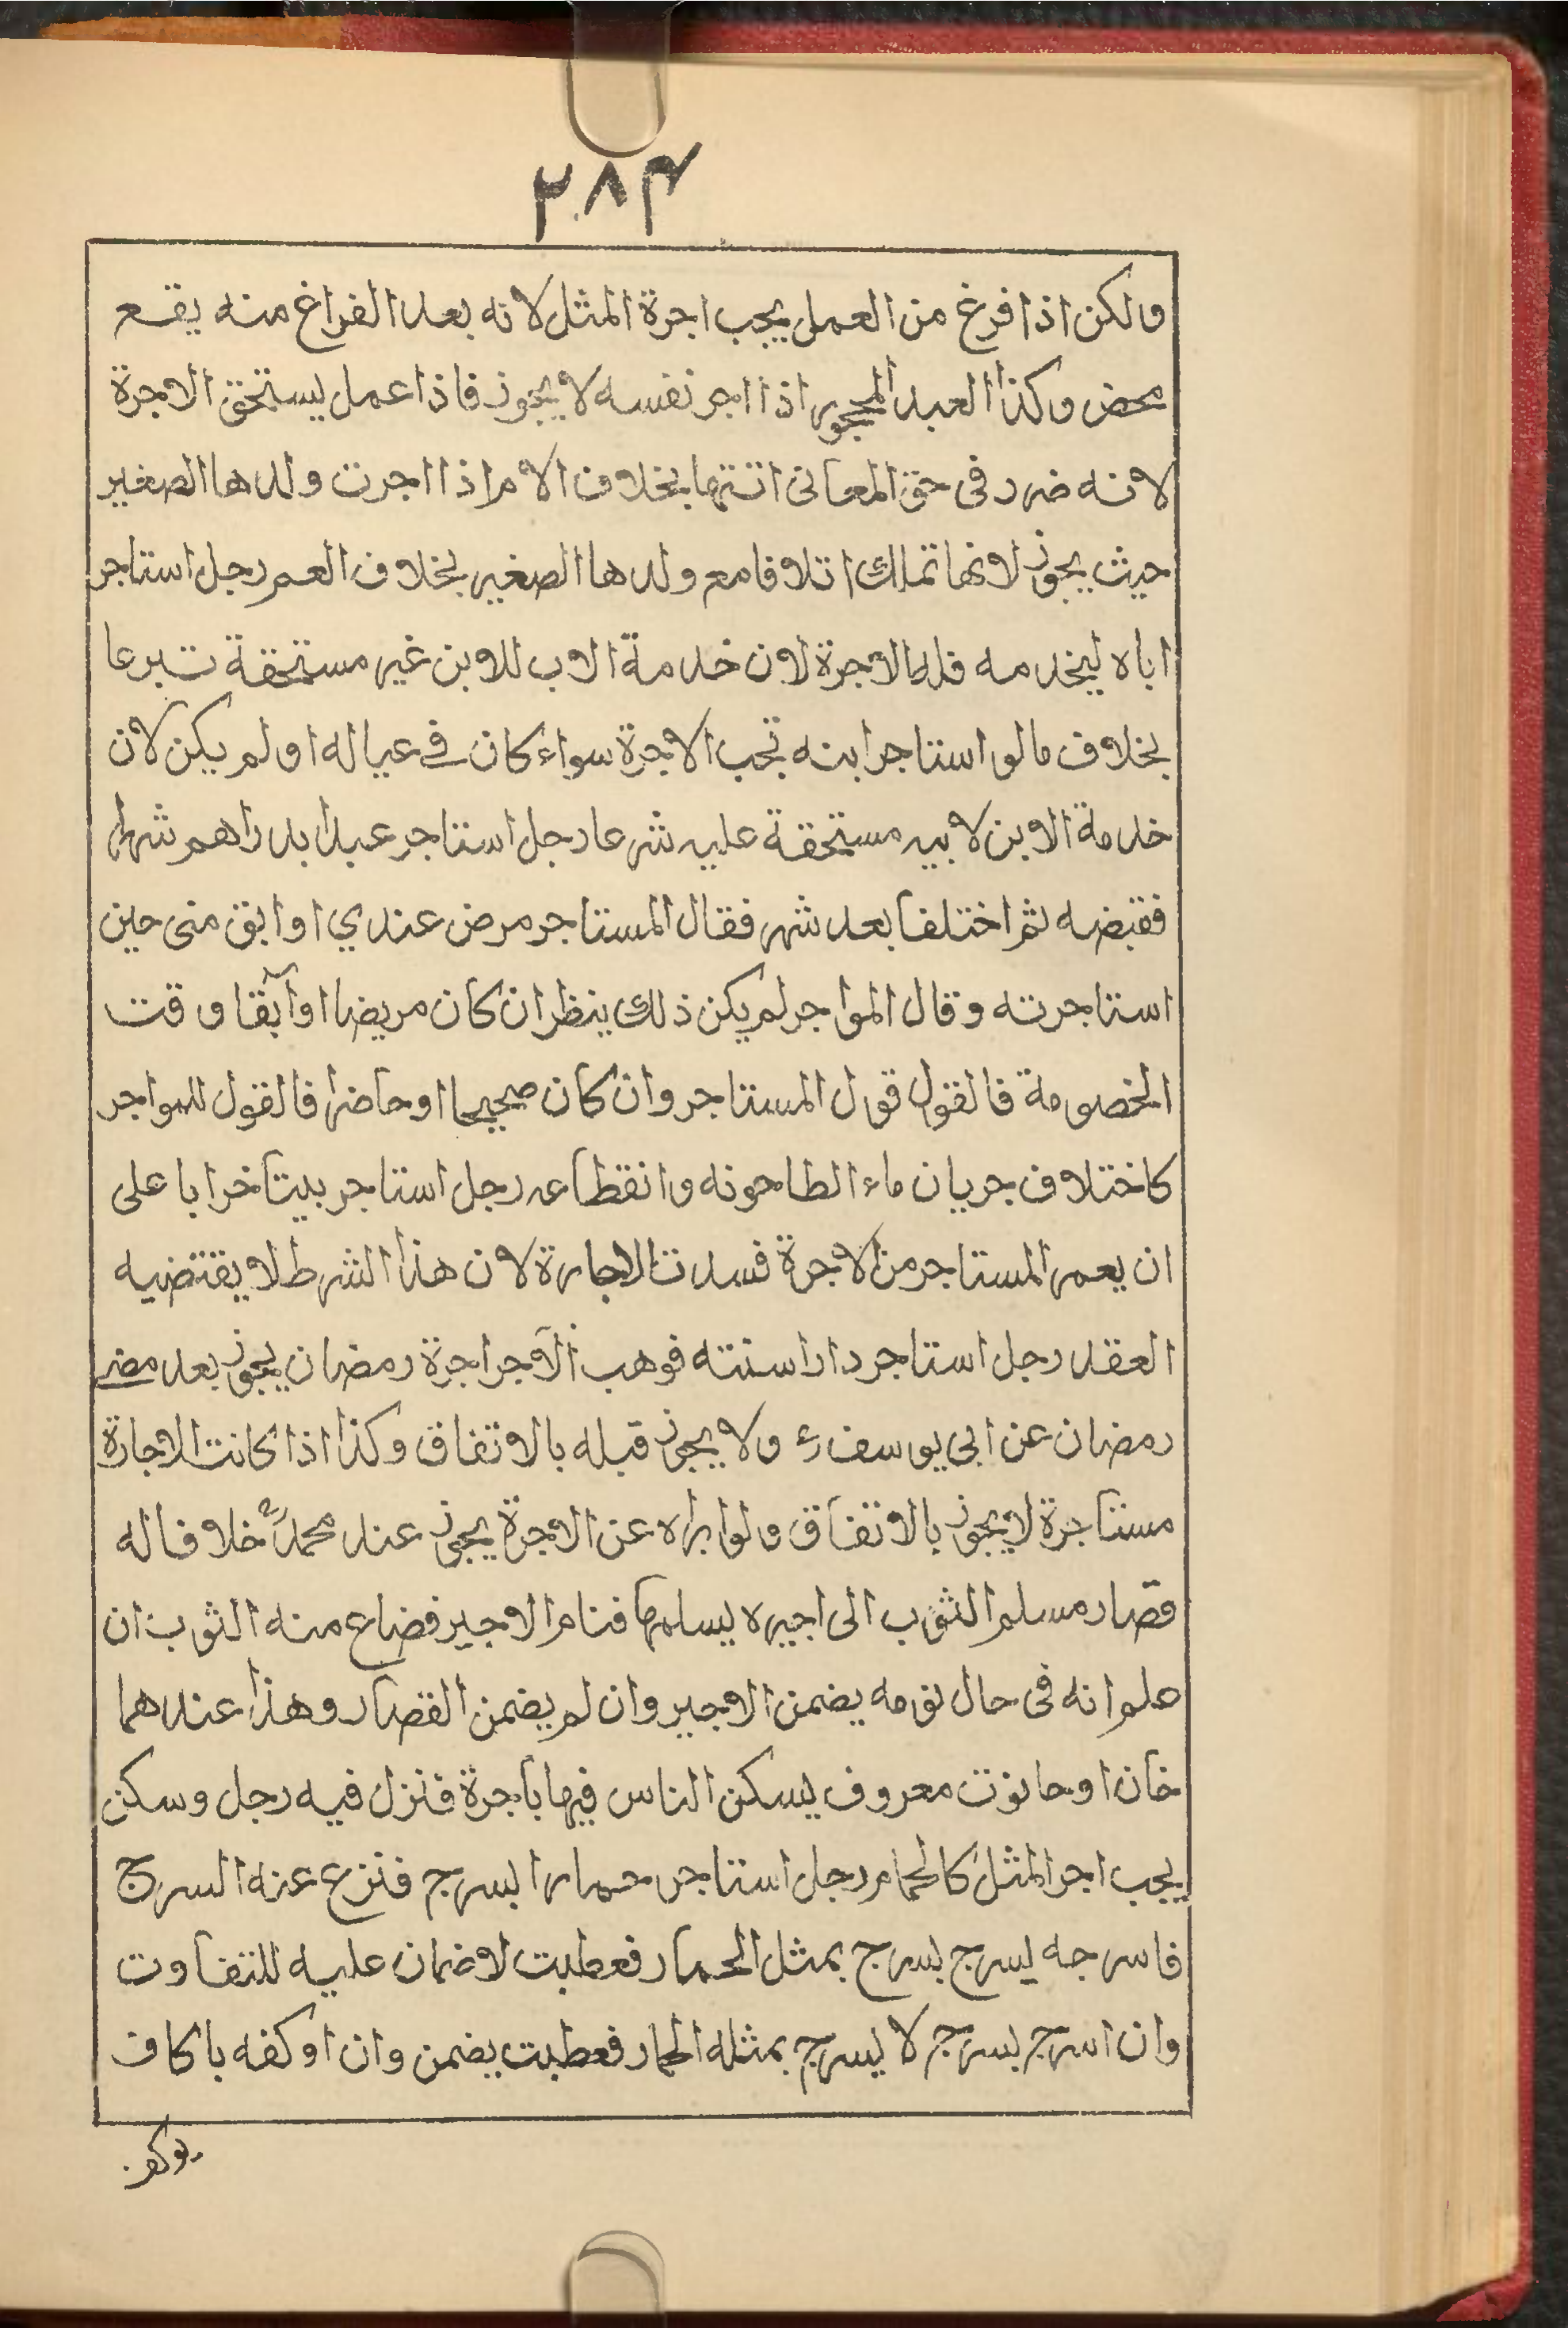 ٢٨٤
ولكن اذا فرغ من العمل يجب اجرة المثل لانه بعد الفراغ منه يقع
محض وكذا العبد المحجور اذا اجر نفسه لا يجوز فاذا عمل يستحق الاجرة
لانه ضرر فى حق المعانى انتها بخلاف الام اذا اجرت ولدها الصغير
حيث يجوز لانها تملك اتلافا مع ولدها الصغير بخلاف العم رجل استاجر
اباه ليخدمه فله الاجرة لان خدمة الاب للابن غير مستحقة تبرعا
بخلاف ما لو استاجر ابنه تجب الاجرة سواء كان في عياله او لم يكن لان
خدمة الابن لابيه مستحقة عليه شرعا رجل استاجر عبدا بدراهم شهرا
فقبضه ثم اختلفا بعد شهر فقال المستاجر مرض عندي او ابق منى حين
استاجرته وقال المواجر لم يكن ذلك ينظر ان كان مريضا او آبقا وقت
الخصومة فالقول قول المستاجر وان كان صحيحا او حاضرا فالقول للمواجر
كاختلاف جريان ماء الطاحونه وانقطاعه رجل استاجر بيتا خرابا على
ان يعمر المستاجر من الاجرة فسدت الاجارة لان هذا الشرط لا يقتضيه
العقد رجل استاجر دارا سنته فوهب الآجر اجرة رمضان يجوز بعد مضى
رمضان عن ابى يوسف رح ولا يجوز قبله بالاتفاق وكذا اذا كانت الاجارة
مستاجرة لا يجوز بالاتفاق ولو ابراه عن الاجرة يجوز عند محمد رح خلافا له
قصار مسلم الثوب الى اجيره يسلمها فنام الاجير فضاع منه الثوب ان
علم انه فى حال نومه يضمن الاجير وان لم يضمن القصار وهذا عندهما
خان او حانوت معروف يسكن الناس فيها باجرة فنزل فيه رجل وسكن
يجب اجر المثل كالحمام رجل استاجر حمارا بسرج فنزع عنه السرج
فاسرجه يسرج بسرج بمثل الحمار فعطبت لا ضمان عليه للتفاوت
وان اسرج بسرج لا يسرج بمثله الحمار فعطبت يضمن وان اوكفه باكاف
يوكف